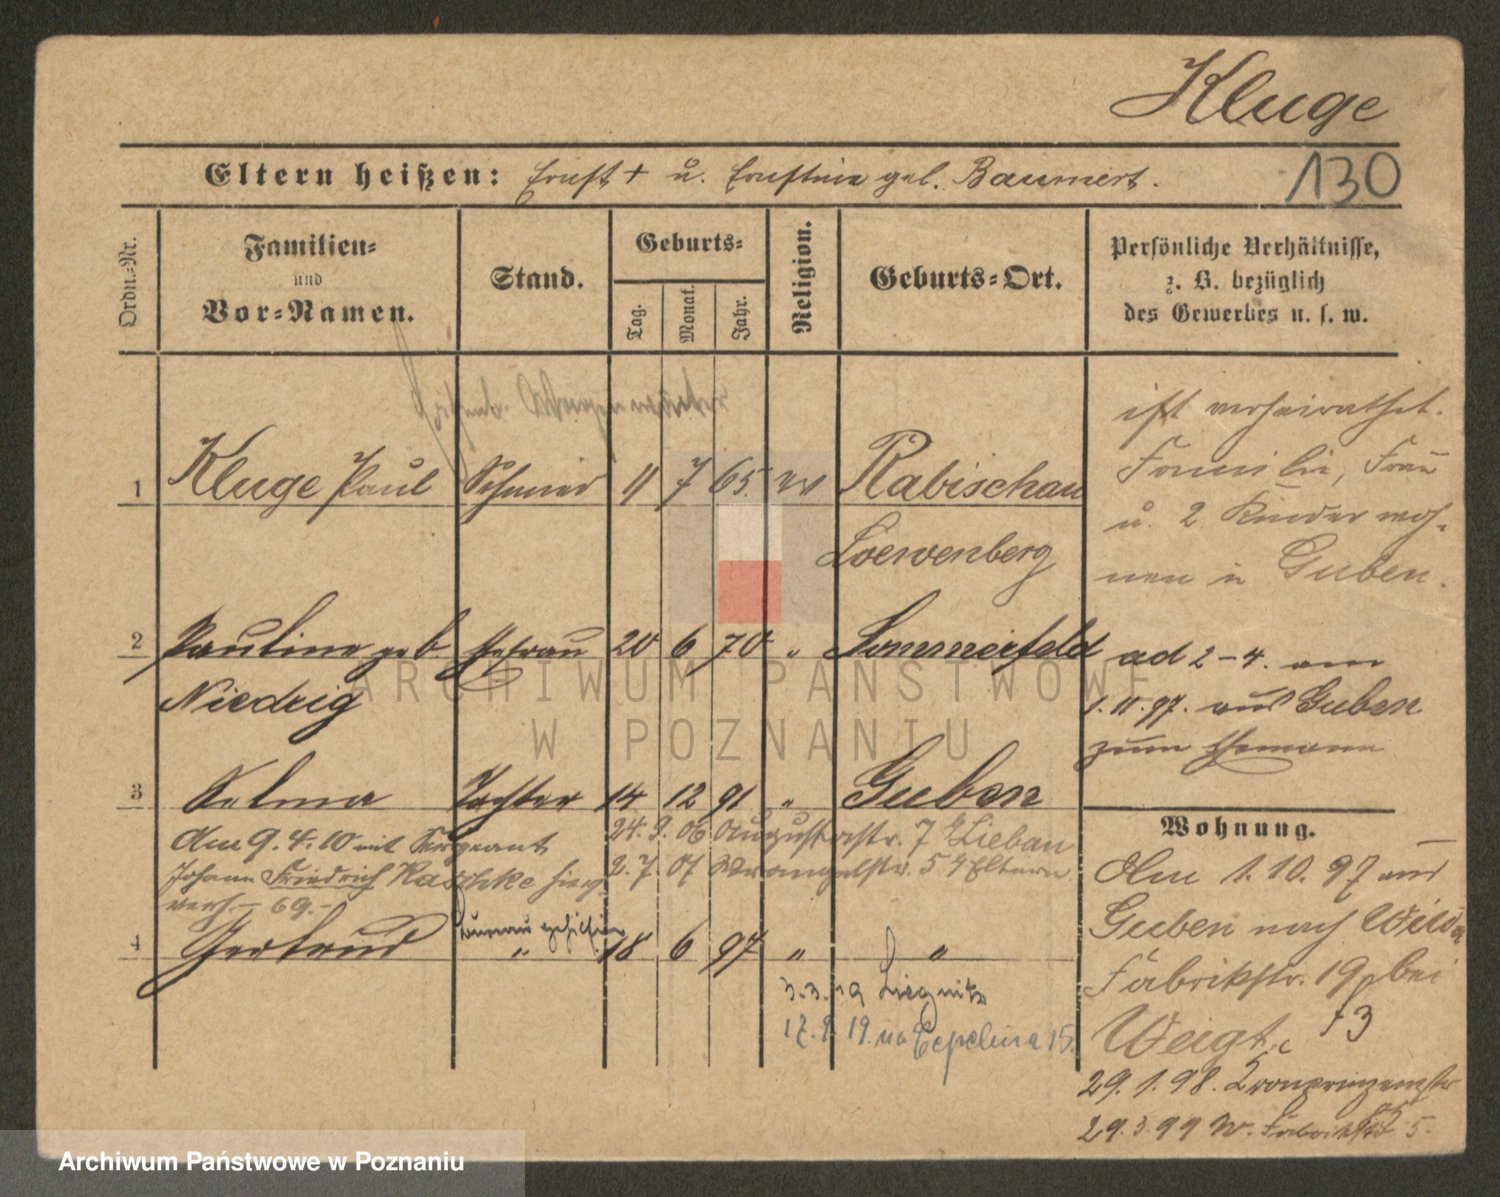 Kluge
Eltern heißen: Ernst + u. Ernstine geb. Baumert.
130
Ordn.-Nr.
Familien-
und
Vor-Namen.
Stand.
Geburts-
Tag.
Monat.
Jahr.
Religion.
Geburts-Ort.
Persönliche Verhältnisse,
z. B. bezüglich
des Gewerbes u. s. w.
1 Kluge Paul Schmied 11 7 65 ev Rabischau
Loewenberg
ist verheirathet.
Familie, Frau
u. 2 Kinder woh-
nen in Guben.
2 Pauline geb Ehefrau 20 6 70 " Sommerfeld
Niedrig
ad 2-4. am
1.11.97. aus Guben
zum Ehemann
3 Selma Tochter 14 12 91 " Guben
24. 9. 06 Augustastr. 7 Liebau
2. 7. 07 Wrangelstr. 5 Eltern
Am 9. 4. 10 mit Sergeant
Johann Friedrich Raschke hier
verh. - 69. -
4 Gertrud " 18 6 97 " "
3.3.19 Liegnitz
17. 9. 19.
Wohnung.
Am 1. 10. 97 aus
Guben nach Wilda
Fabrikstr. 19 bei
Weigt.
29. 1. 98. Kronprinzenstr
29. 3. 99 W. Fabrikstr 5.
ARCHIWUM PAŃSTWOWE
W POZNANIU
Archiwum Państwowe w Poznaniu